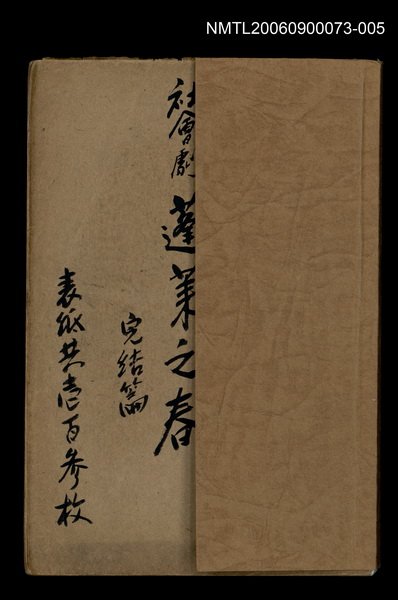 NMTL20060900073-005
社會劇 蓬萊之春
完結篇
表紙共壱百参枚